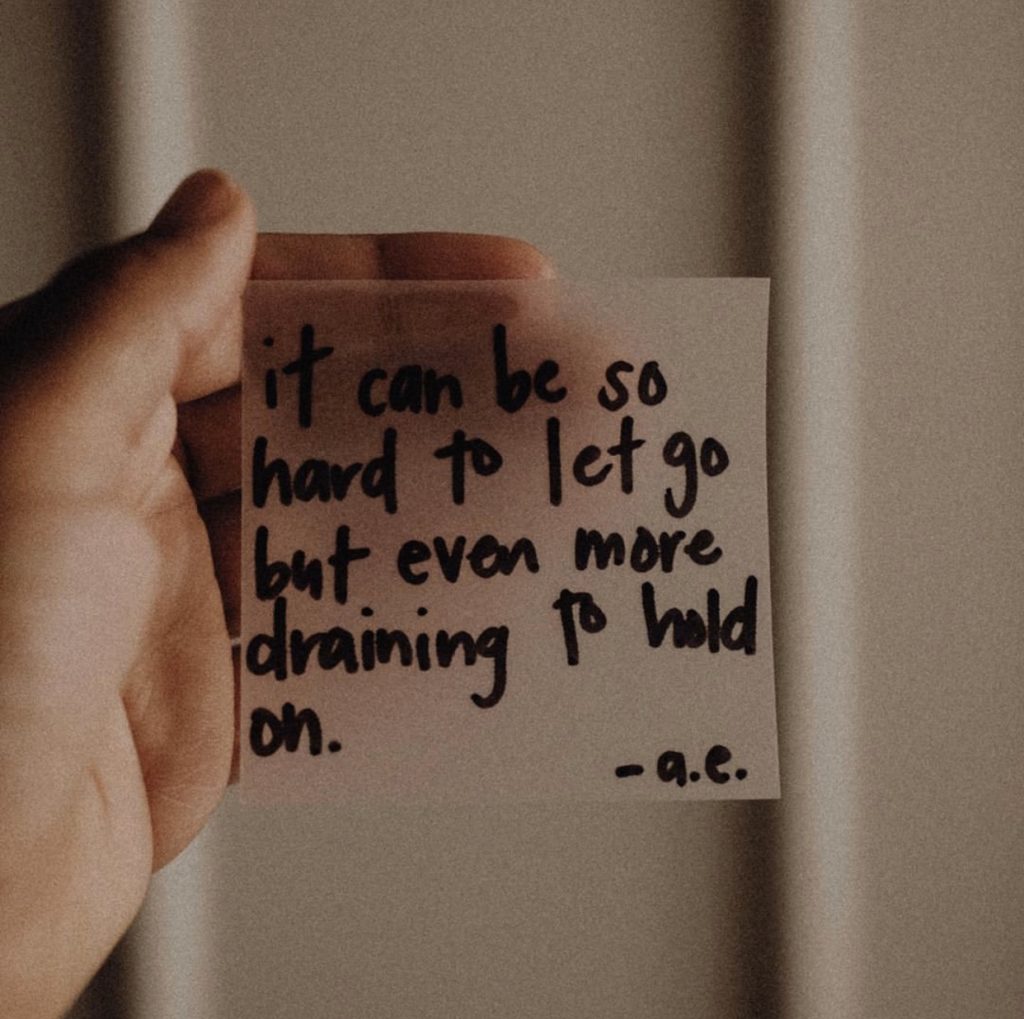 it can be so
hard to let go
but even more
draining to hold
on.
-a.e.